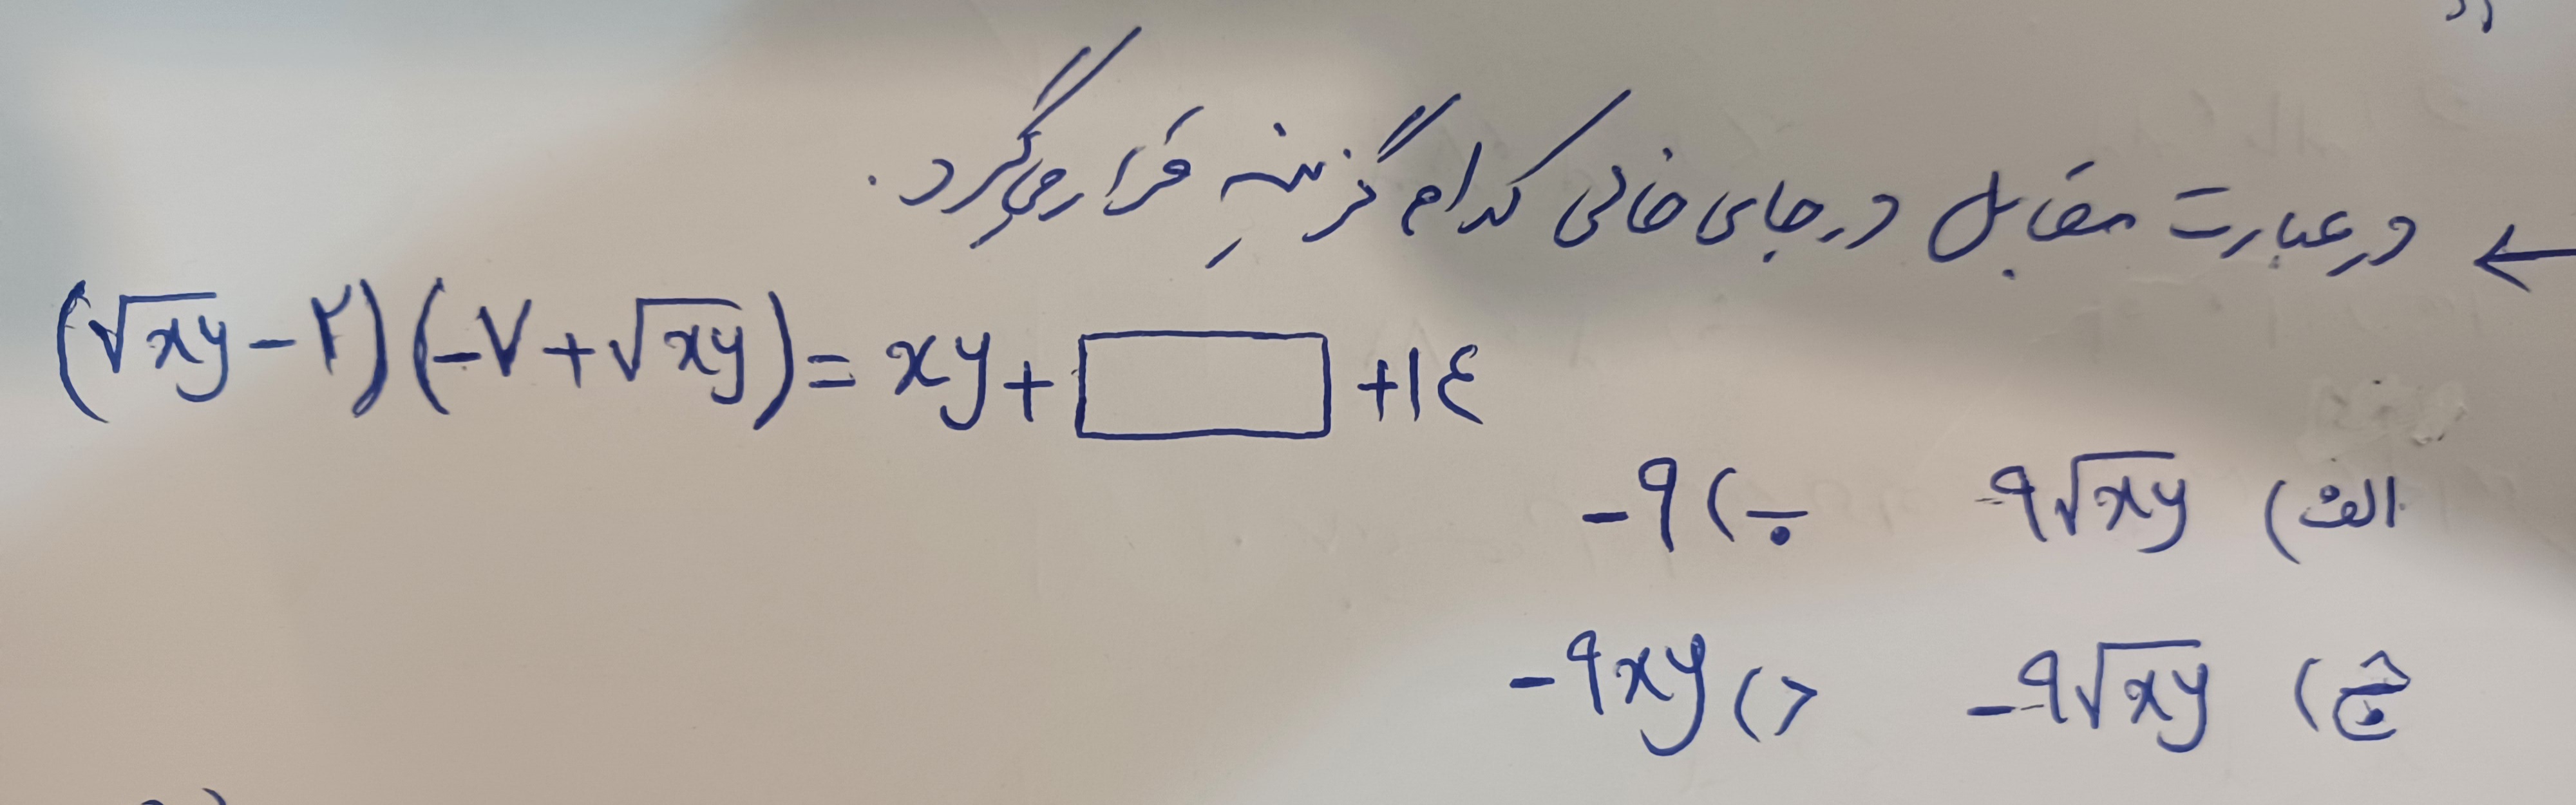 ← در عبارت مقابل در جای خالی کدام گزینه قرار می‌گیرد.
(√xy - ۲)(-۷ + √xy) = xy + □ + ۱٤
الف) ۹√xy ب) -۹
ج) -۹√xy د) -۹xy